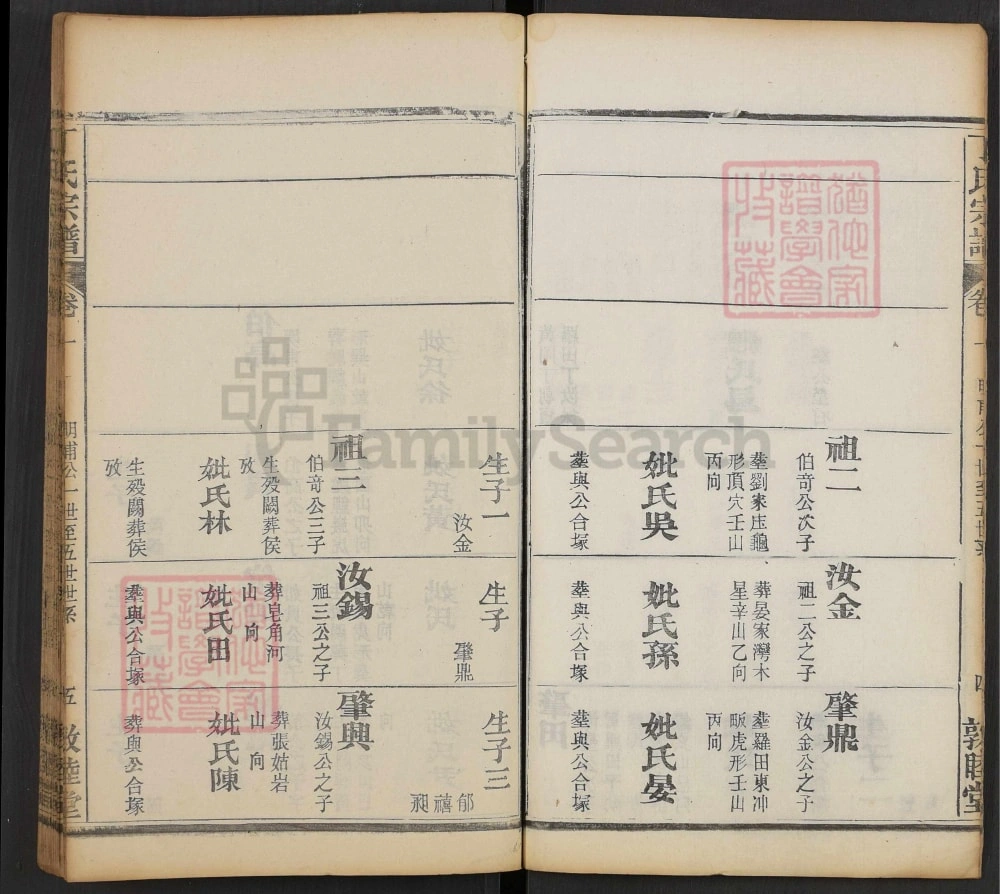 丁氏宗譜
卷一
四
敦睦堂
祖二
伯奇公次子
塟劉家庄龜
形頂穴壬山
丙向
妣氏吳
塟與公合塚
生子一
汝金
汝金
祖二公之子
葬晏家灣木
星辛山乙向
妣氏孫
塟與公合塚
生子
肇鼎
肇鼎
汝金公之子
塟羅田東冲
畈虎形壬山
丙向
妣氏晏
塟與公合塚
生子三
郁
禧
祖三
伯奇公三子
生殁闕葬侯
攷
妣氏林
生殁闕葬侯
攷
汝錫
祖三公之子
葬皂角河
山 向
妣氏田
塟與公合塚
肇興
汝錫公之子
葬張姑岩
山 向
妣氏陳
葬與公合塚
丁氏宗譜
卷一
明甫公一世至五世世系
五
敦睦堂
猶他家
譜學會
收藏
猶他家
譜學會
收藏
FamilySearch